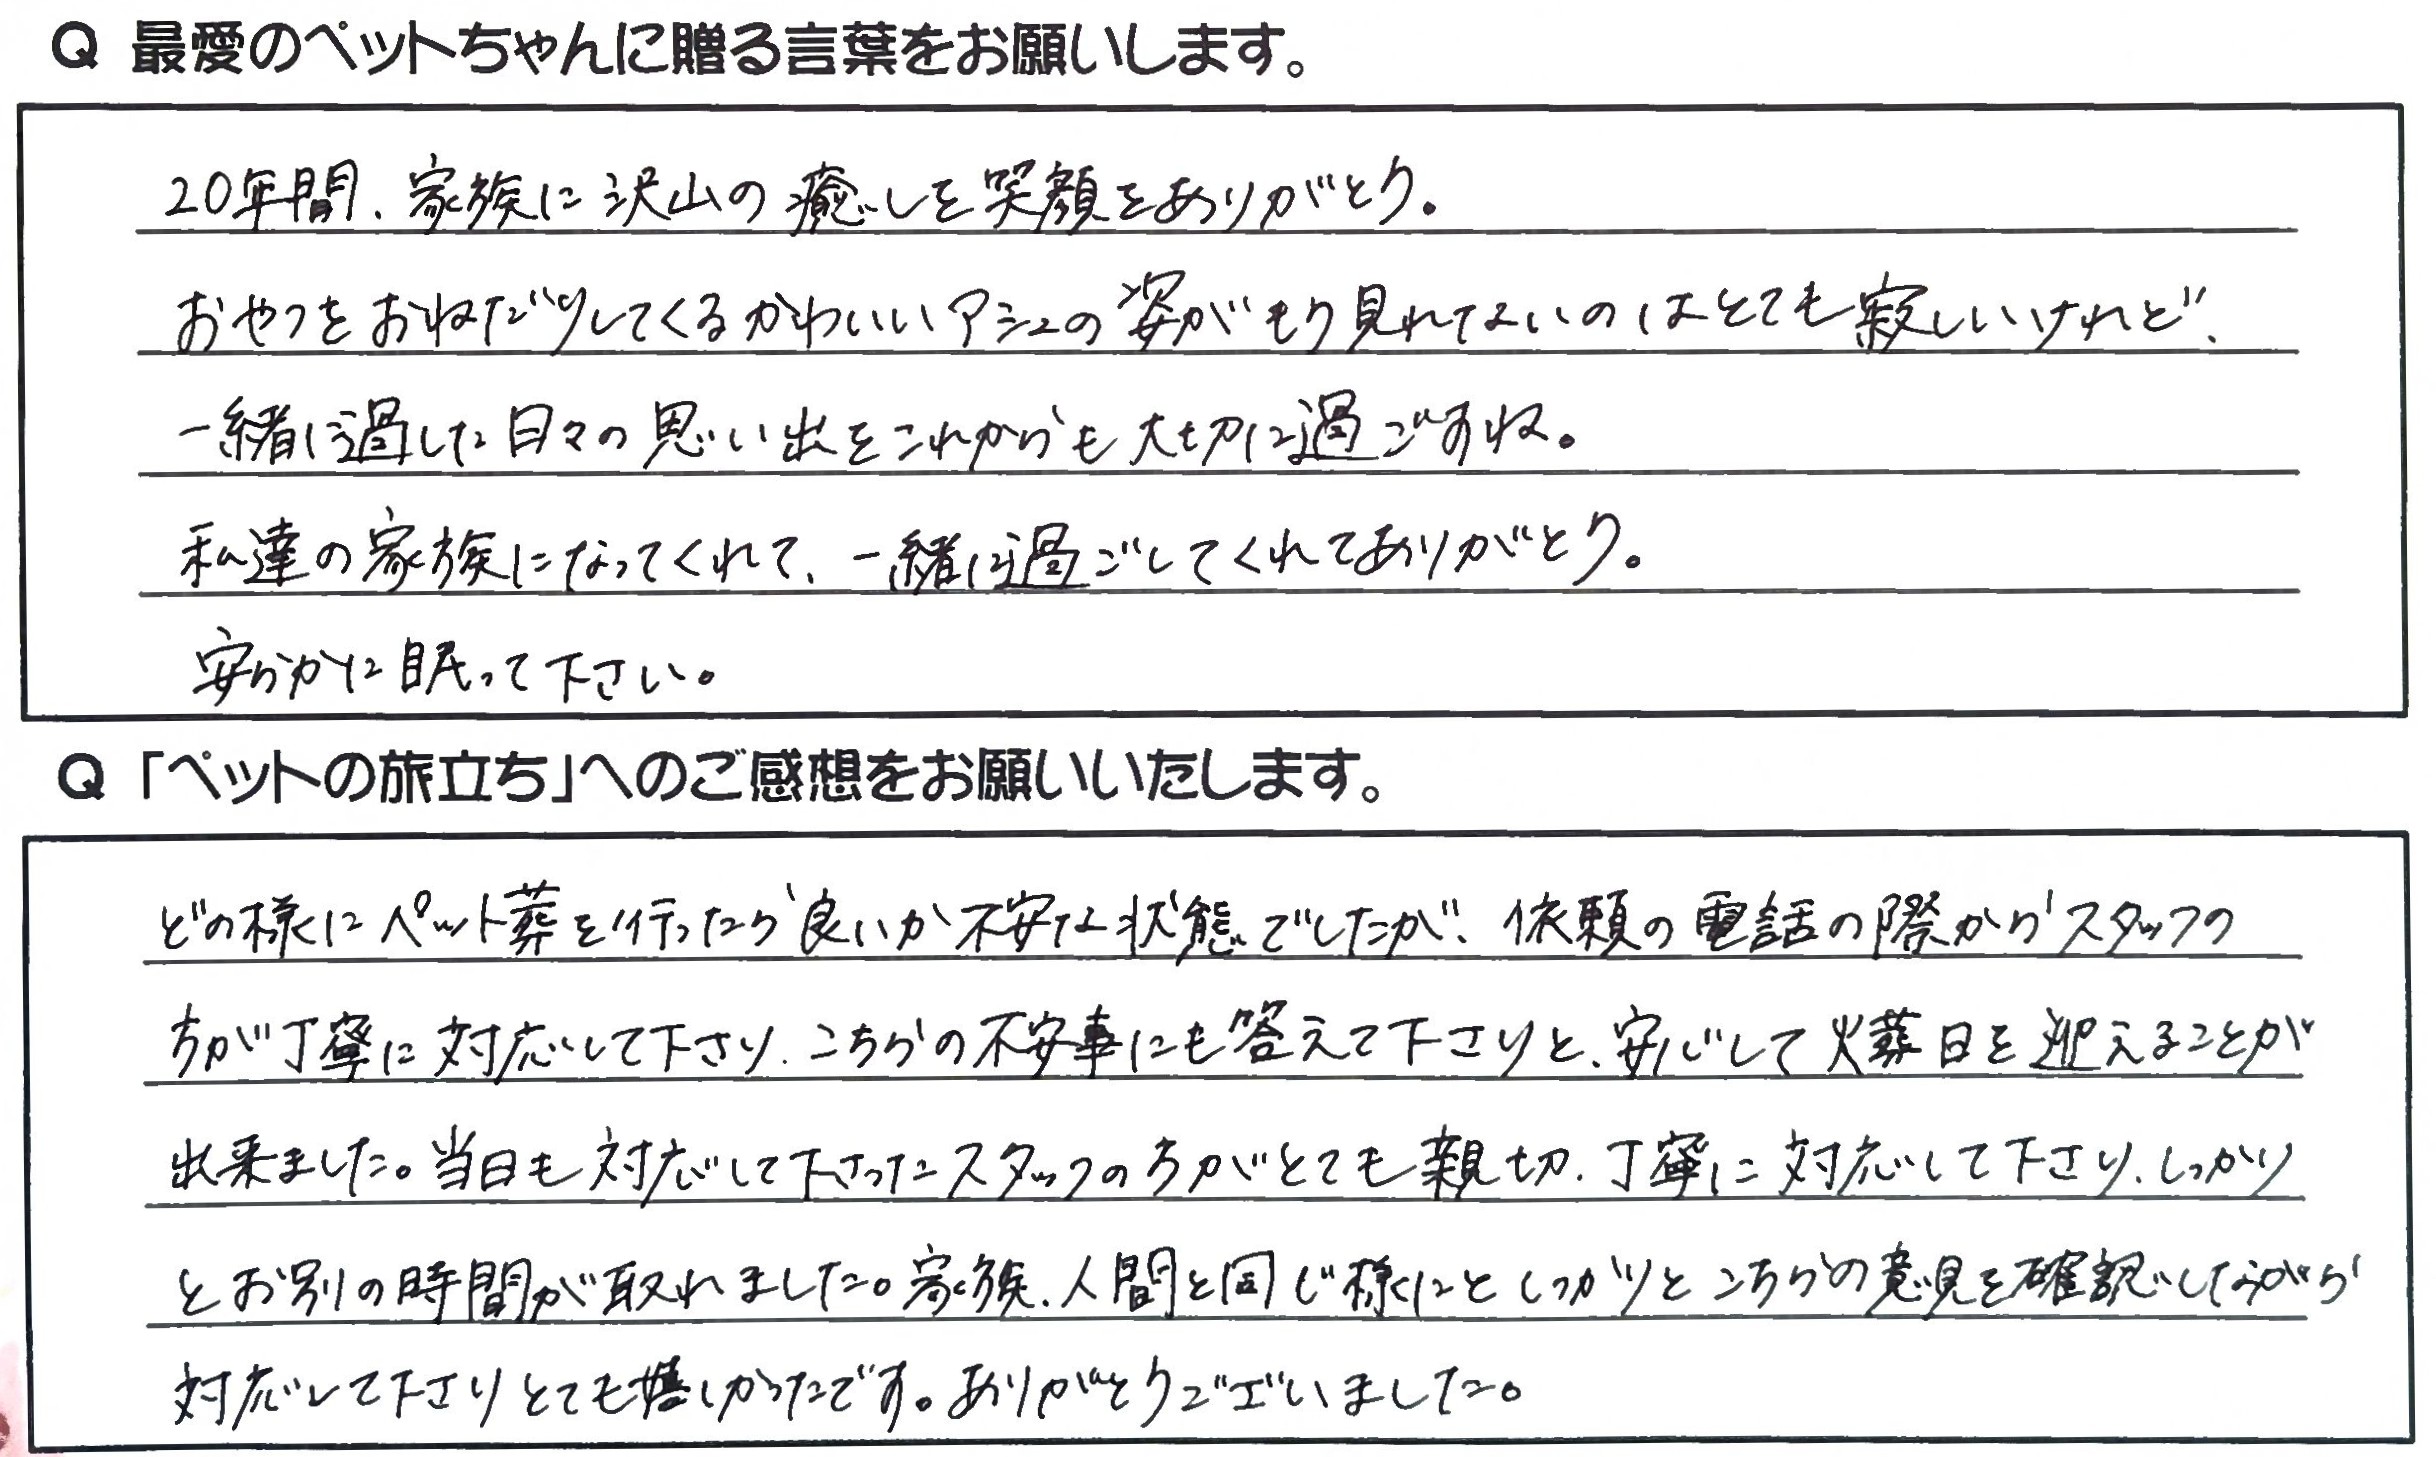 Q 最愛のペットちゃんに贈る言葉をお願いします。
20年間、家族に沢山の癒しを笑顔をありがとう。
おやつをおねだりしてくるかわいいアシュの姿がもう見れてないのはとても寂しいけれど、
一緒に過した日々の思い出をこれからも大切に過ごすね。
私達の家族になってくれて、一緒に過ごしてくれてありがとう。
安らかに眠って下さい。
Q 「ペットの旅立ち」へのご感想をお願いいたします。
どの様にペット葬を行ったら良いか不安な状態でしたが、依頼の電話の際からスタッフの
方が丁寧に対応して下さり、こちらの不安事にも答えて下さりと、安心して火葬日を迎えることが
出来ました。当日も対応して下さったスタッフの方がとても親切、丁寧に対応して下さり、しっかり
とお別の時間が取れました。家族、人間と同じ様にとしっかりとこちらの意見を確認しながら
対応して下さりとても嬉しかったです。ありがとうございました。